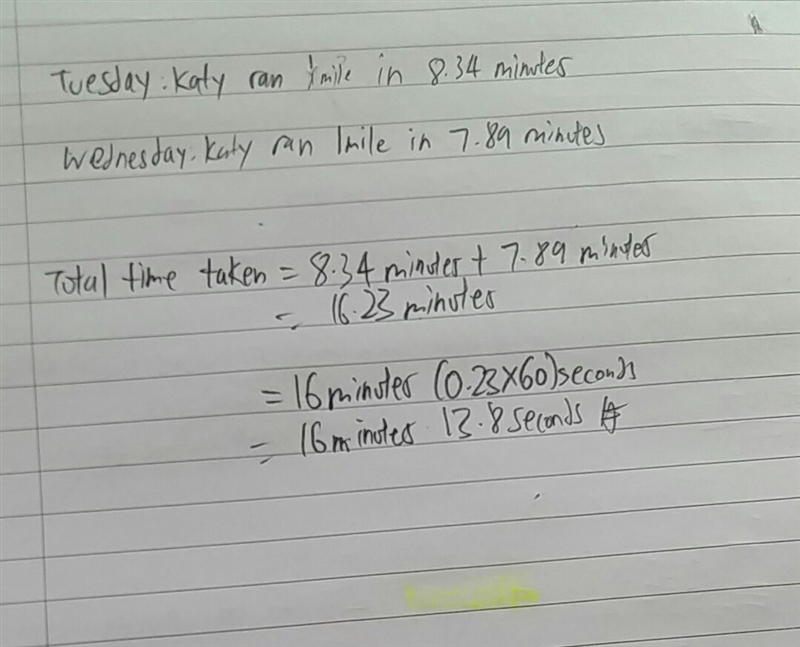 Tuesday. Katy ran 1mile in 8.34 minutes
Wednesday. Katy ran 1mile in 7.89 minutes
Total time taken = 8.34 minutes + 7.89 minutes
= 16.23 minutes
= 16 minutes (0.23×60) seconds
= 16 minutes 13.8 seconds